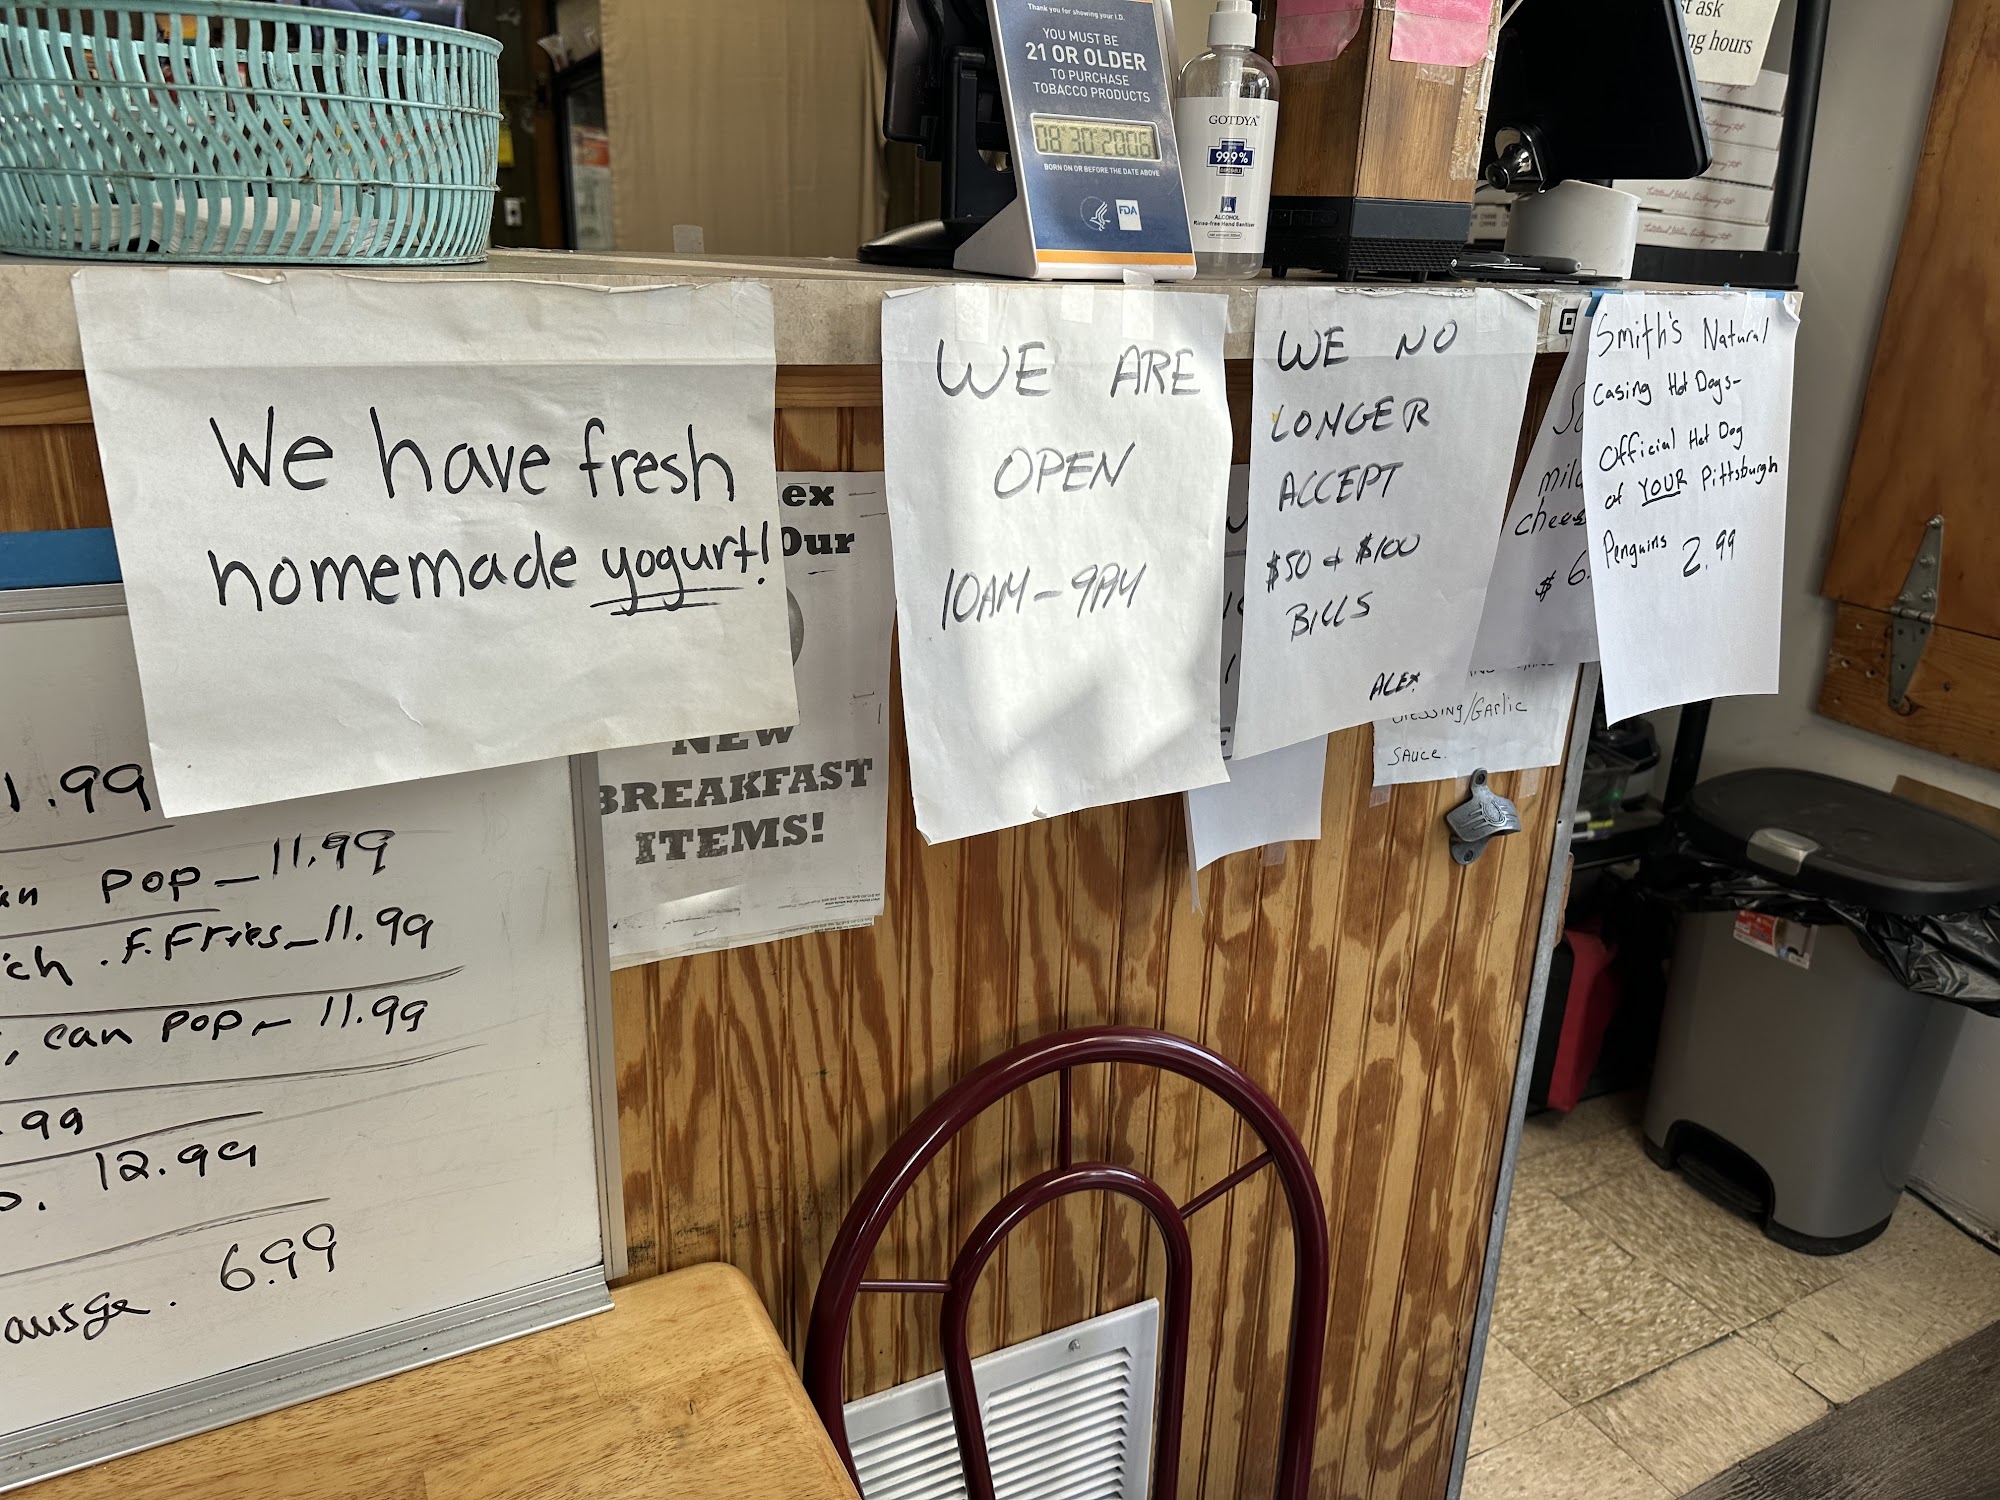 Thank you for showing your I.D.
YOU MUST BE
21 OR OLDER
TO PURCHASE
TOBACCO PRODUCTS
08 30 2006
BORN ON OR BEFORE THE DATE ABOVE
FDA
GOTDYA
99.9%
ALCOHOL
Rinse-free Hand Sanitizer
ask
hours
We have fresh
homemade yogurt!
ex
Our
NEW
BREAKFAST
ITEMS!
WE ARE
OPEN
10AM-9PM
WE NO
LONGER
ACCEPT
$50 & $100
BILLS
ALEX
$6.
Sauce.
/Garlic
Smith's Natural
Casing Hot Dogs-
Official Hot Dog
of YOUR Pittsburgh
Penguins 2.99
1.99
Pop - 11.99
F.Fries - 11.99
, can Pop - 11.99
.99
12.99
6.99